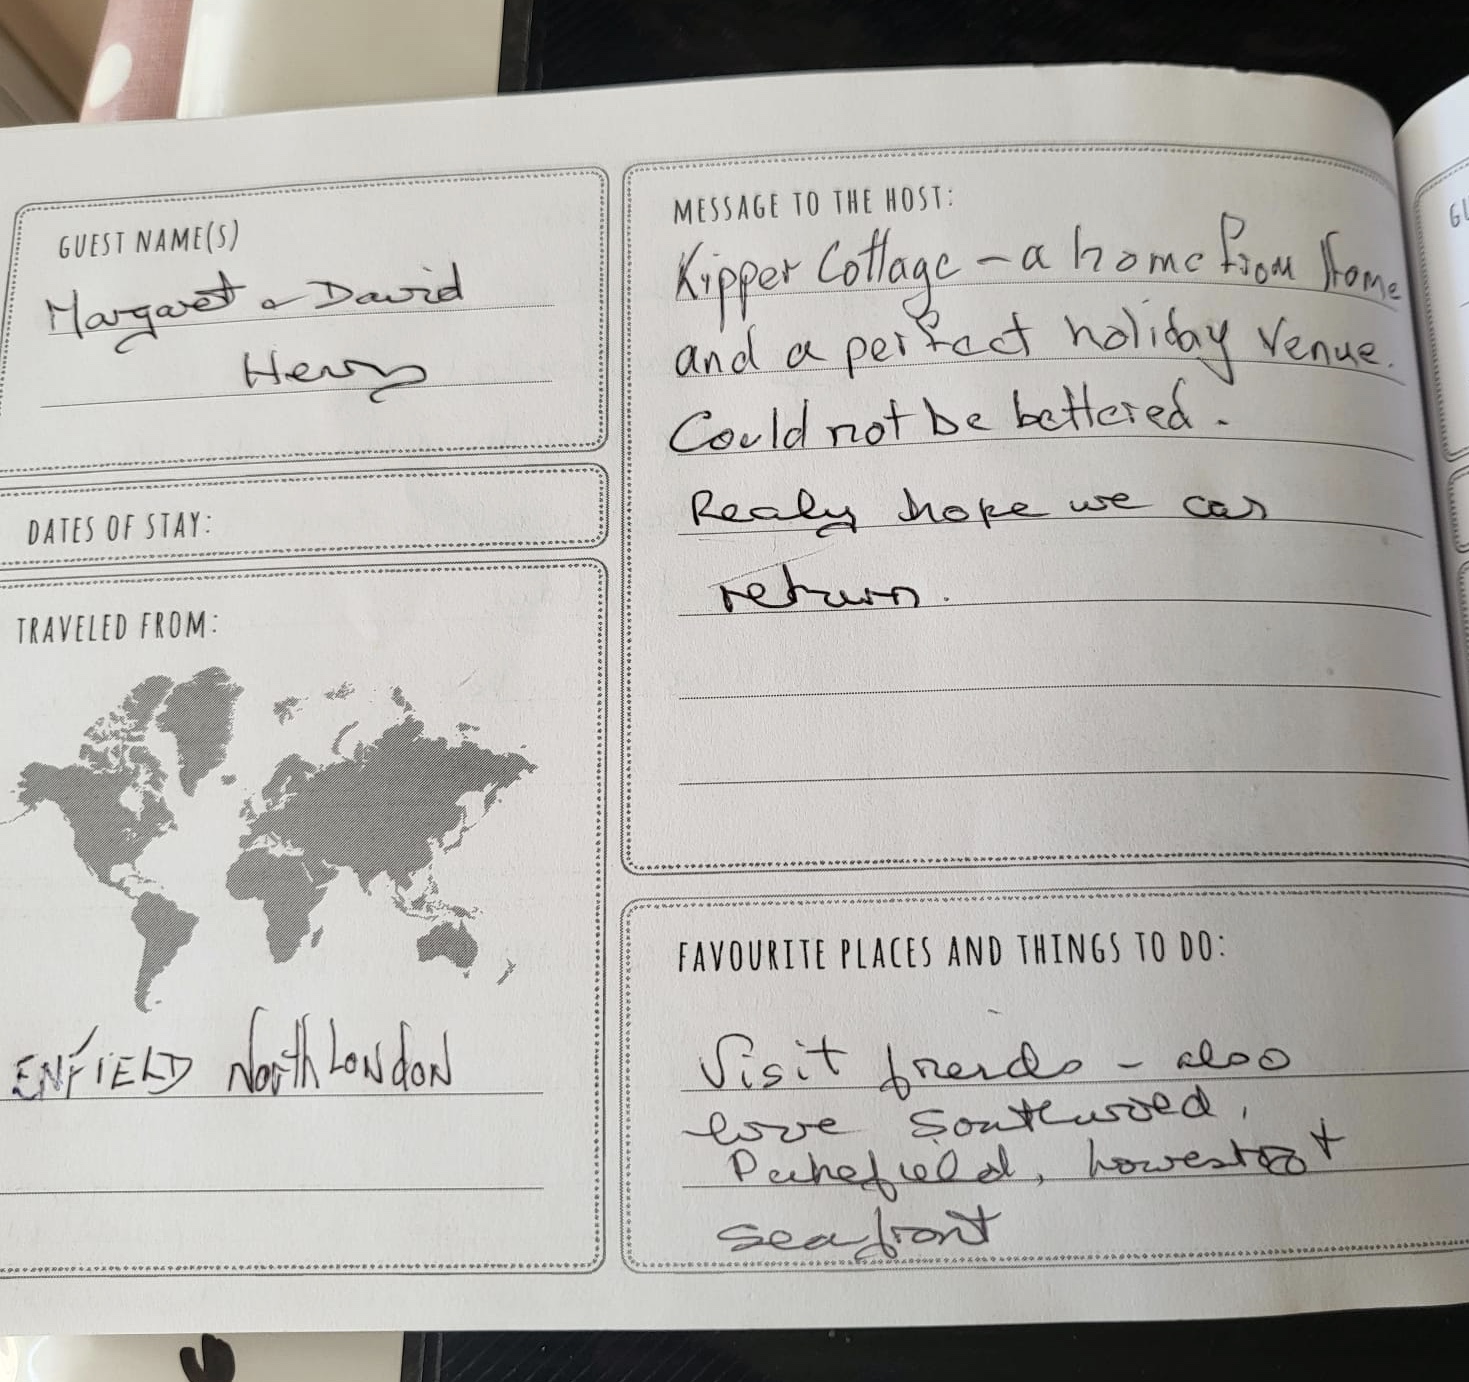 GUEST NAME(S)
Margaret & David
Henry
DATES OF STAY:
TRAVELED FROM:
ENFIELD North LONDON
MESSAGE TO THE HOST:
Kipper Cottage - a home from Home
and a perfect holiday venue.
Could not be bettered.
Realy hope we can
return.
FAVOURITE PLACES AND THINGS TO DO:
Visit friends - also
love Southwold,
Pakefield, Lowestoft
seafront
GU